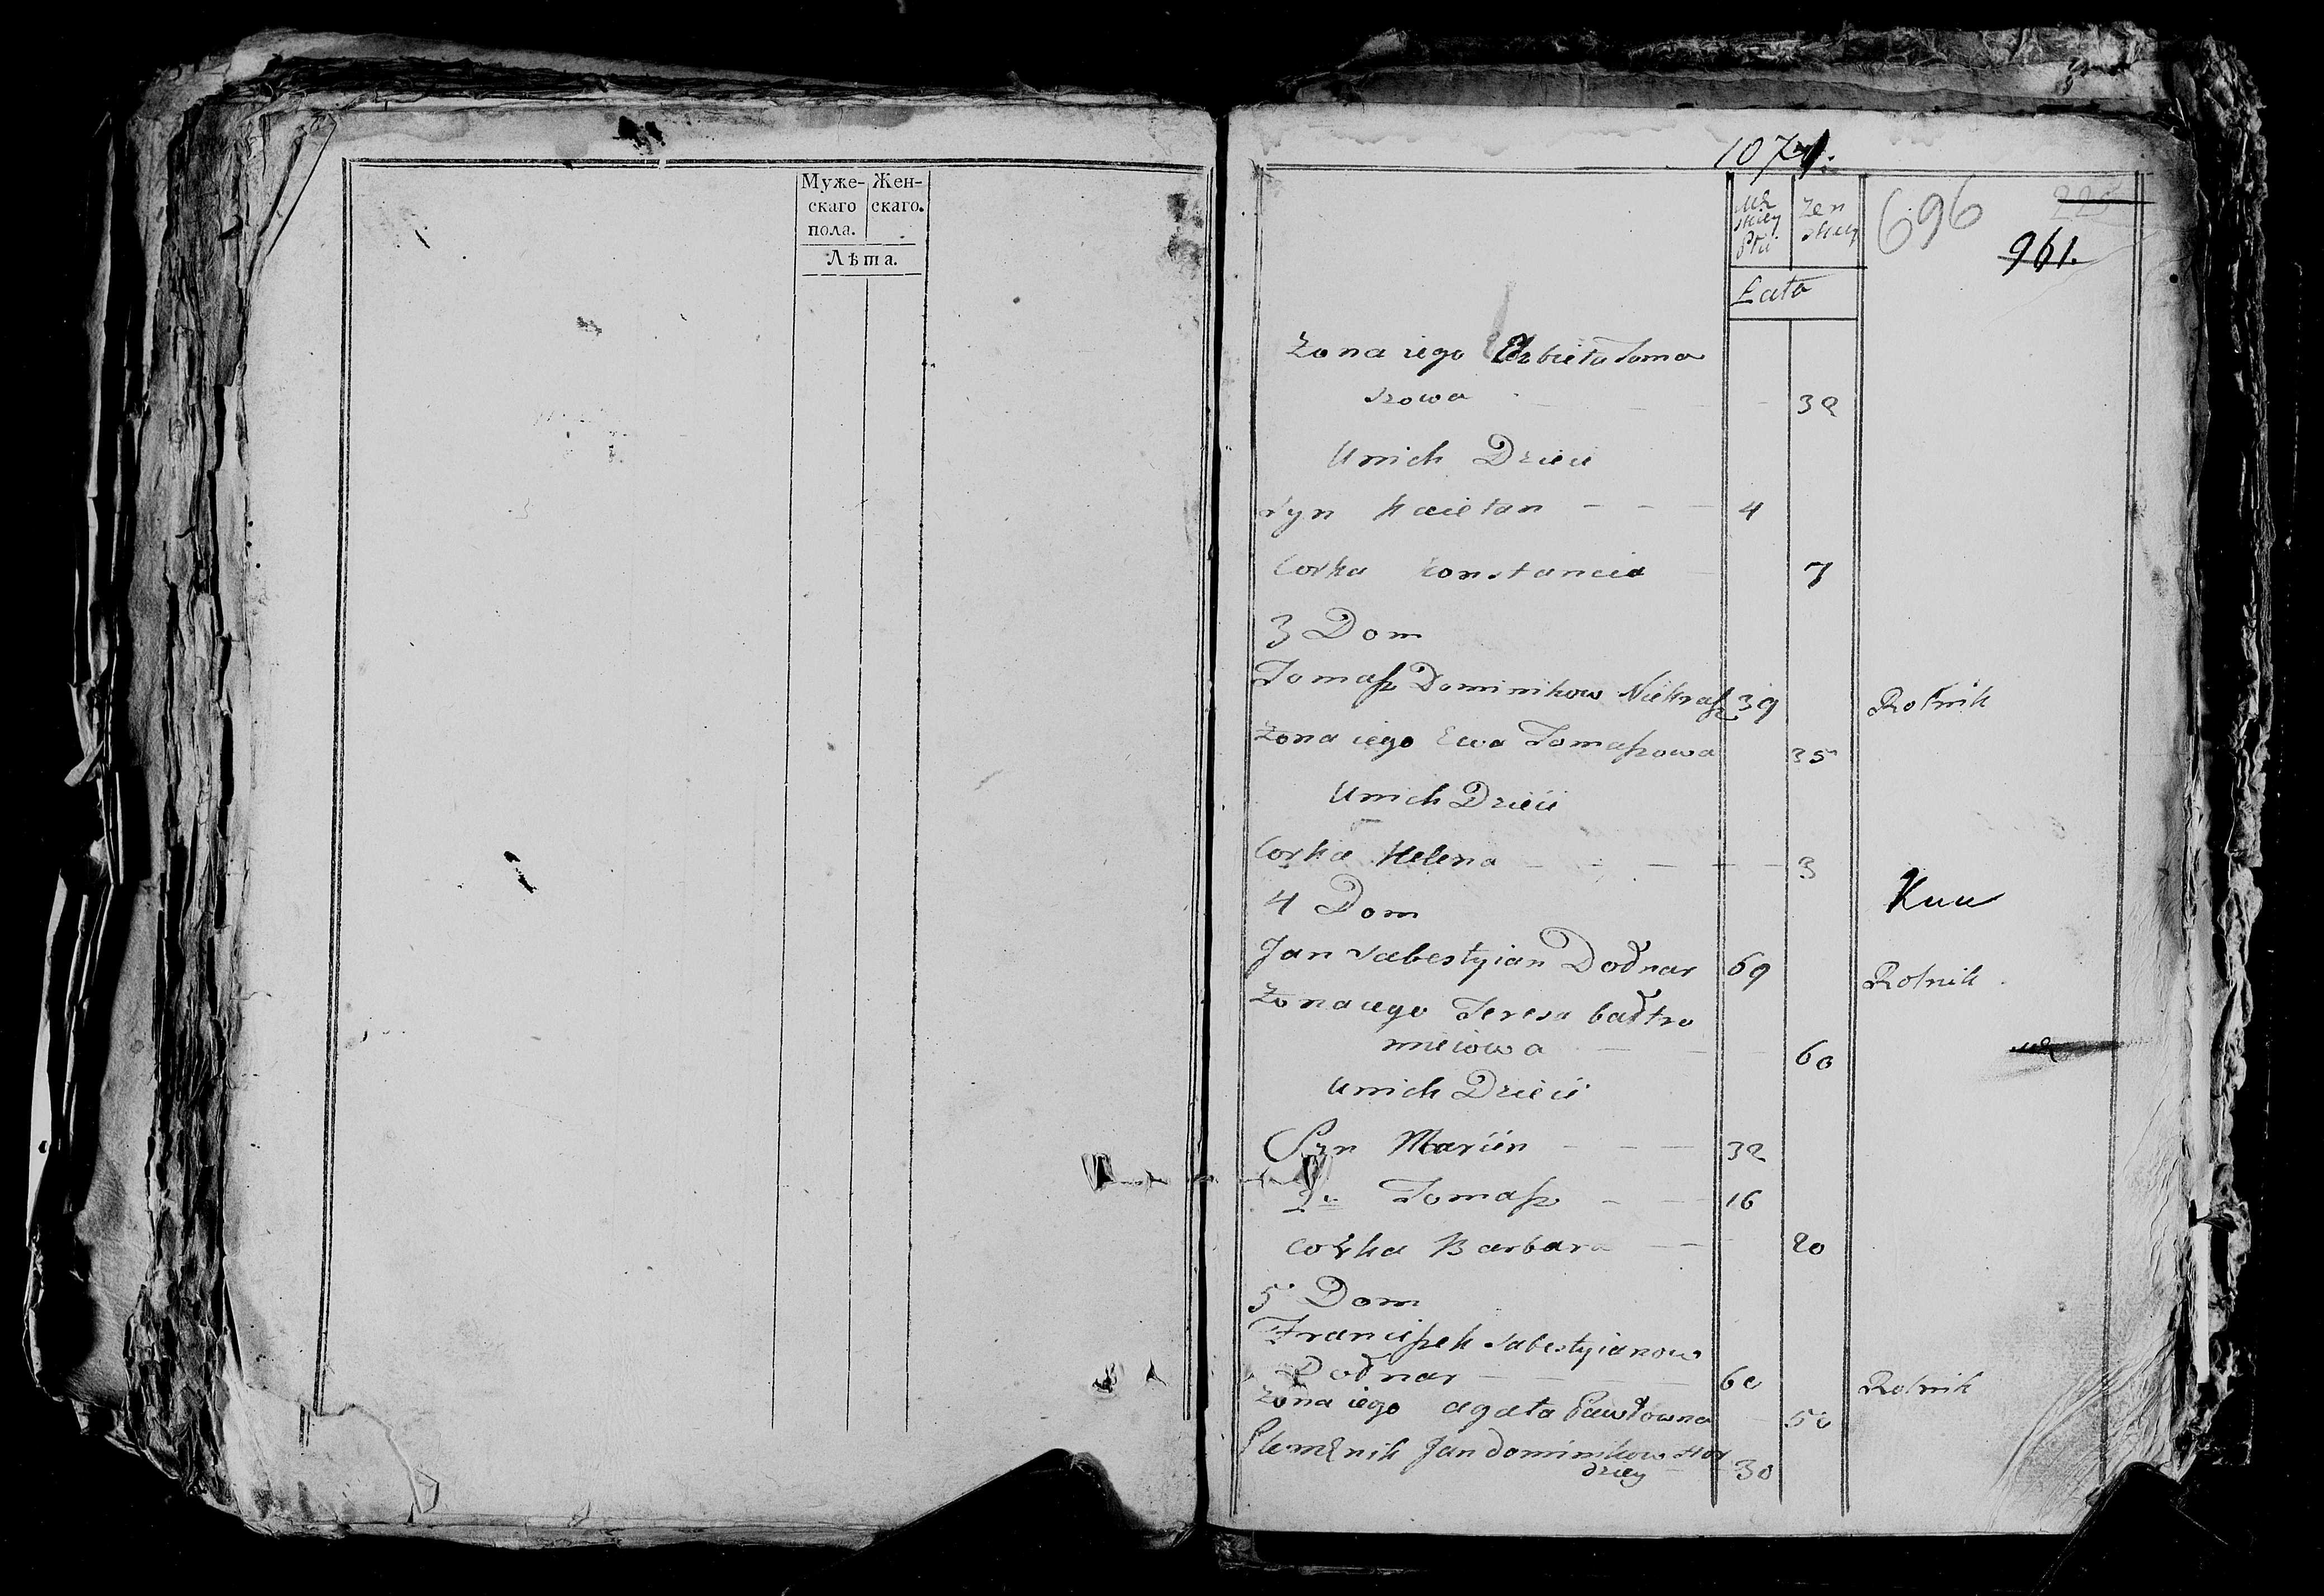 Муже-
скаго
пола.
Жен-
скаго.
Лѣта.
107
696
225
961.
Mę
skiey
Płci
Zen
skiey
Lata
Zona iego Elzbieta Toma
szowa 32
U nich Dzieci
Syn Kaietan 4
Corka Konstancia 7
3 Dom
Tomasz Dominikow Niekrasz 39 Rolnik
Zona iego Ewa Tomaszowa 35
U nich Dzieci
Corka Helena 3
4 Dom
Jan Sabestyian Dodnar 69 Rolnik
Zona iego Teresa bałtro
mieiowa 60
U nich Dzieci
Syn Marcin 32
2i Tomasz 16
Corka Barbara 20
5 Dom
Franciszek Sabestyianow
Dodnar 60 Rolnik
Zona iego agata Pawłowna 50
Plemęnik Jan dominikow Hor
dziey 30